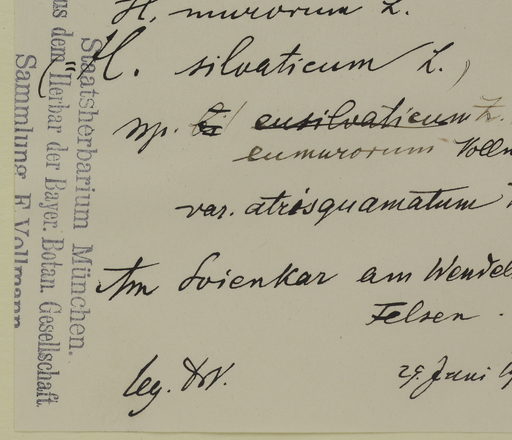 H. murorum L.
("H. silvaticum L.)
ssp. eusilvaticum Z.
eumurorum Vollm
var. atrisquamatum
Am Soienkar am Wendel
Felsen.
leg. Dr V.
29. Juni 19
Staatsherbarium München.
us dem Herbar der Bayer. Botan. Gesellschaft
Sammlung F. Vollmann